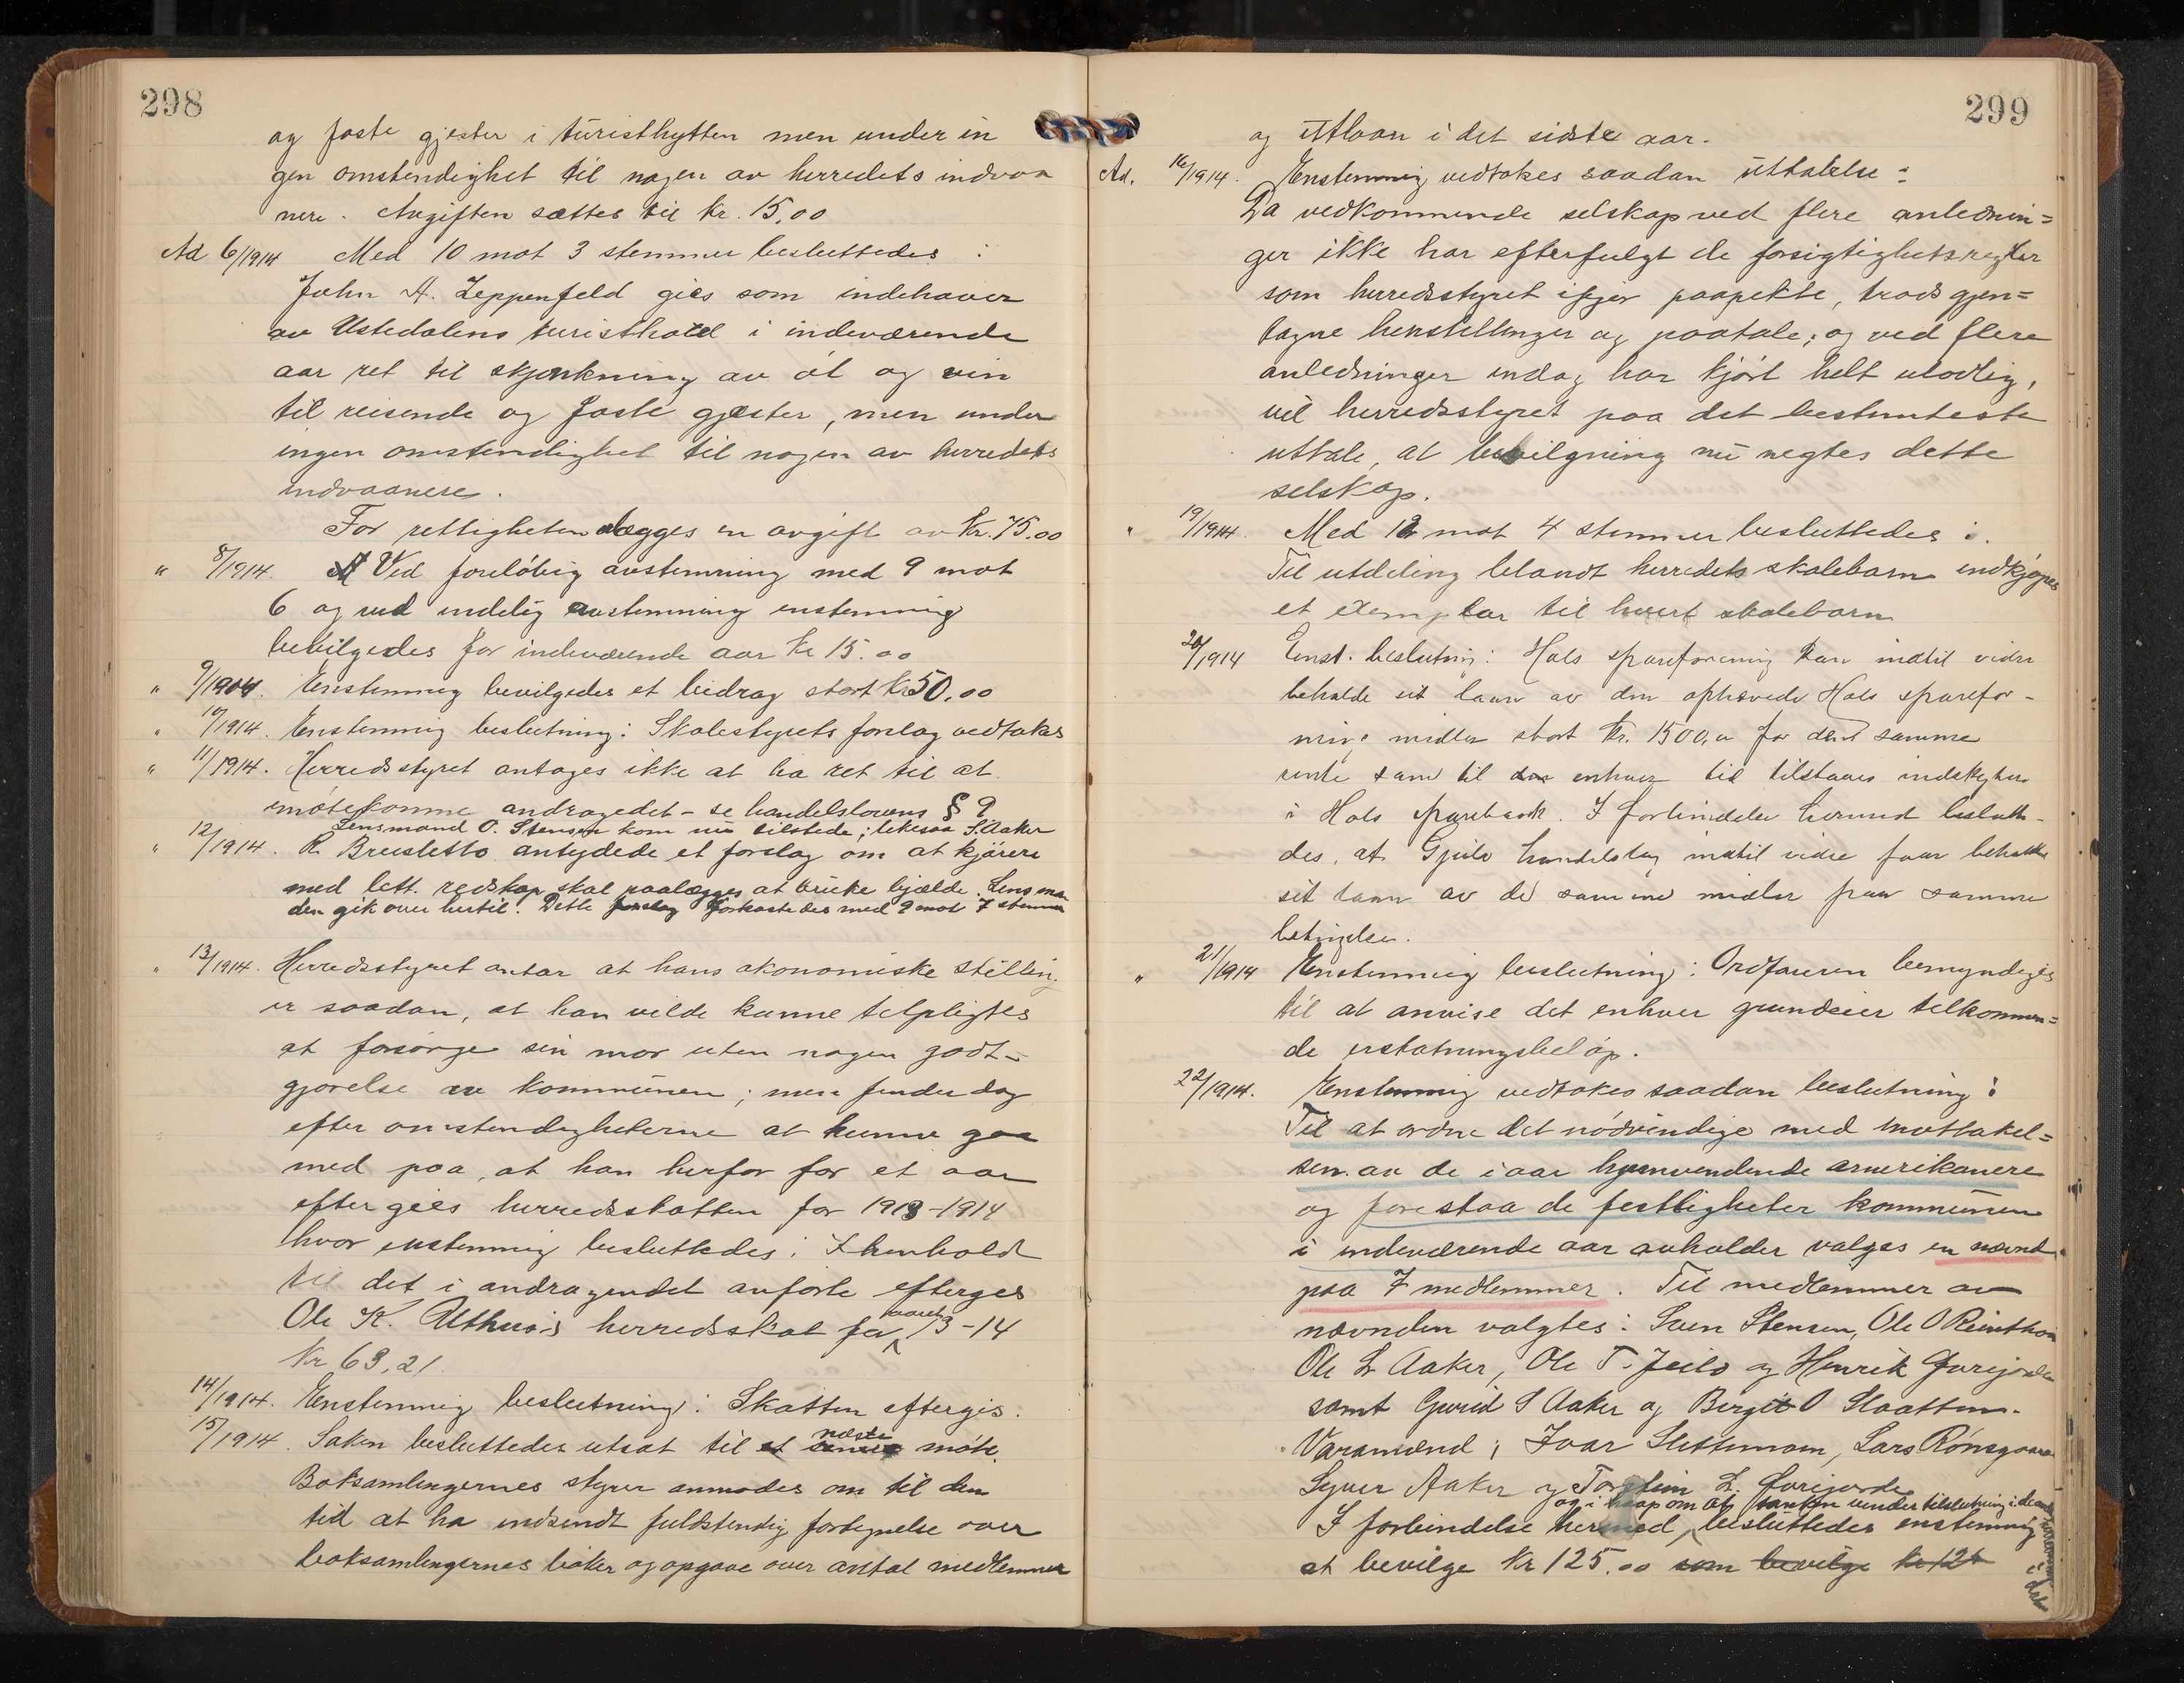 298
og faste gjester i turisthytten men under in
gen omstendighet til nogen av herredets indvaa
nere. Avgiften sættes til kr. 15,00
Ad 6/1914 Med 10 mot 3 stemmer besluttedes :
John A. Zeppenfeld gies som indehaver
av Ustedalens turisthotel i indeværende
aar ret til skjenkning av øl og vin
til reisende og faste gjester, men under
ingen omstendighet til nogen av herredets
indvaanere.
For rettigheten lægges en avgift av kr. 75.00
" 8/1914. Ved foreløbig avstemning med 9 mot
6 og ved endelig avstemning enstemmig
bevilgedes for indeværende aar kr 15.00
" 9/1914. Enstemmig bevilgedes et bidrag stort kr 50,00
" 10/1914. Enstemmig beslutning: Skolestyrets forslag vedtokes
" 11/1914. Herredsstyret antages ikke at ha ret til at
imøtekomme andragedet - se handelslovens § 9
Lensmand O. Stensen kom nu tilstede; likesaa S. Aaker
" 12/1914. K. Breiestetto antydede et forslag om at kjørere
med lett redskap skal paalægges at bruke bjælde. Lensman
den gik over hertil. Dette forslag forkastedes med 9 mot 7 stemmer
" 13/1914. Herredsstyret antar at hans økonomiske stilling
er saadan, at han vilde kunne tilpligtes
at forsørge sin mor uten nogen godt-
gjørelse av kommunen; men finder dog
efter omstendigheterne at kunne gaa
med paa, at han herfor for et aar
eftergies herredsskatten for 1913-1914
hvor enstemmig besluttedes: I henhold
til det i andragendet anførte efterges
Ole K. herredsskat for aaret 13-14
kr 63,21.
14/1914. Enstemmig beslutning: Skatten eftergis.
15/1914. Saken besluttedes utsat til et næste møte.
Boksamlingernes styrer anmodes om til den
tid at ha indsendt fuldstendig fortegnelse over
boksamlingernes bøker og opgave over antal medlemmer
299
og utlaan i det sidste aar.
Ad. 16/1914. Enstemmig vedtokes saadan uttalelse:
Da vedkommende selskap ved flere anlednin=
ger ikke har efterfulgt de forsigtighetsregler
som herredsstyret ifjor paapekte, trods gjen=
tagne henstillinger og paatale; og ved flere
anledninger endog har kjørt helt ulovlig,
vil herredsstyret paa det bestemteste
uttale, at bevilgning nu negtes dette
selskap.
" 19/1914. Med 12 mot 4 stemmer besluttedes :
Til utdeling blandt herredets skolebarn indkjøpes
et exemplar til hvert skolebarn
20/1914 Enst. beslutning: Hols spareforening kan indtil videre
beholde sit laan av den ophævede Hols sparefor-
nings midler stort Kr. 1500,00 for den samme
rente som til enhver tid tilstaaes indskytere
i Hols Sparebank. I forbindelse hermed beslutte-
des, at Geilo handelslag indtil videre faar beholde
sit laan av de samme midler paa samme
betingelse.
" 21/1914 Enstemmig beslutning: Ordføreren bemyndiges
til at anvise det enhver grundeier tilkommen=
de erstatningsbeløp.
22/1914. Enstemmig vedtokes saadan beslutning:
Til at ordne det nødvendige med mottakel=
sen av de i aar hjemvendende amerikanere
og forestaa de festligheter kommunen
i indeværende aar avholder valges en nævnd
paa 7 medlemmer. Til medlemmer av
nævnden valgtes: Sven Stensen, Ole O Reinton
Ole L Aaker, Ole T. Jeilo og Henrik Furegarden
samt Gurid S Aaker og Birgit O Slaatten.
Varamænd: Ivar Slettemoen, Lars Rønsgaard
Syver Aaker og Torstein L. Furegarde
og i haap om at tanken vinder tilslutning i de andre herreder i Hal
I forbindelse hermed besluttedes enstemmig
at bevilge kr 125.00 som bevilge kr 125